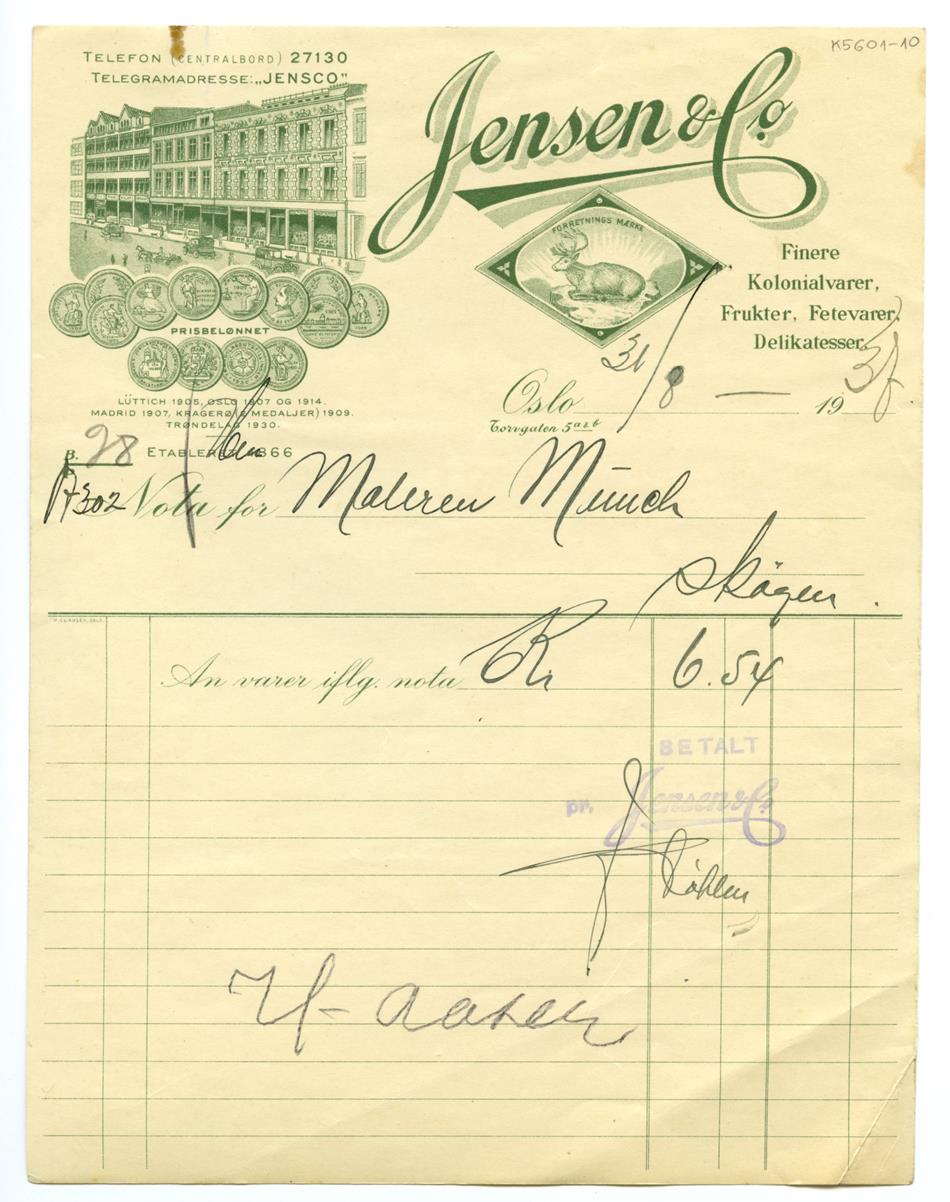 K5601-10
TELEFON (CENTRALBORD) 27130
TELEGRAMADRESSE: „JENSCO"
Jensen & Co
FORRETNINGS MÆRKE
Finere
Kolonialvarer,
Frukter, Fetevarer,
Delikatesser
PRISBELØNNET
LÜTTICH 1905, OSLO 1907 OG 1914.
MADRID 1907, KRAGERØ (2 MEDALJER) 1909.
TRØNDELAG 1930.
ETABLERET 1866
Oslo 31/8 — 19
Torvgaten 5 a & b
B. 98
A302
Nota for Maleren Munch
Skøyen.
An varer iflg. nota Kr 6.54
BETALT
pr. Jensen & Co